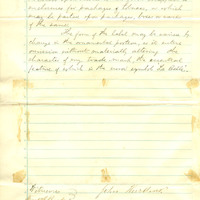 enclosures for packages of tobacco, or which
may be pasted upon packages, boxes or cases
of the same.
The form of the label may be varied by
change in the ornamental portions, or its entire
omission without materially altering the
character of my trade-mark, the essential
feature of which is the word symbol
Witnesses
John